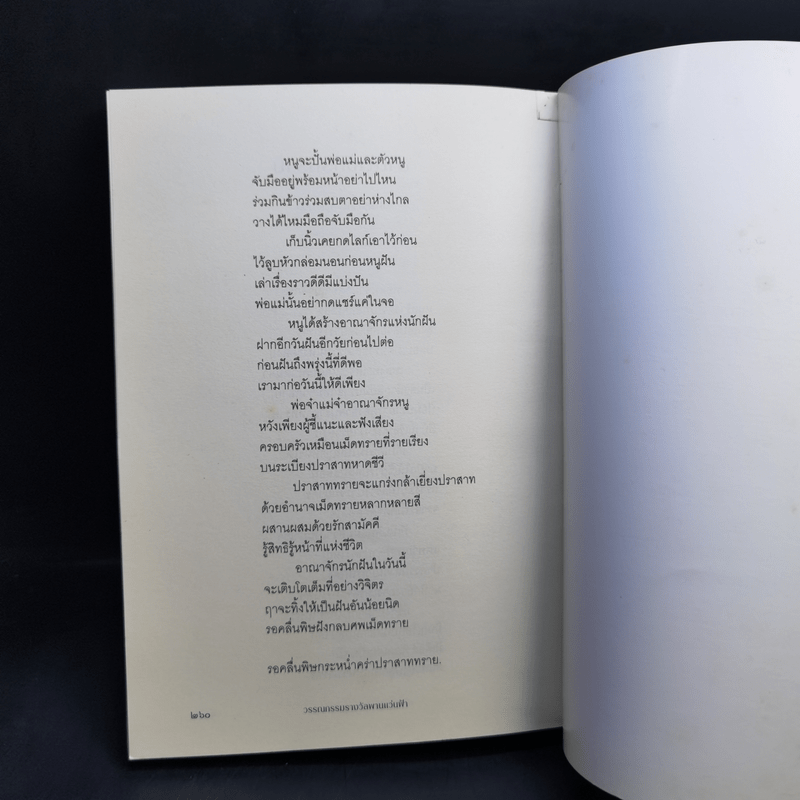 หนูจะปั้นพ่อแม่และตัวหนู
จับมืออยู่พร้อมหน้าอย่าไปไหน
ร่วมกินข้าวร่วมสบตาอย่าห่างไกล
วางได้ไหมมือถือจับมือกัน
เก็บนิ้วเคยกดไลก์เอาไว้ก่อน
ไว้ลูบหัวกล่อมนอนก่อนหนูฝัน
เล่าเรื่องราวดีดีมีแบ่งปัน
พ่อแม่นั้นอย่ากดแชร์แค่ในจอ
หนูได้สร้างอาณาจักรแห่งนักฝัน
ฝากอีกวันฝันอีกวัยก่อนไปต่อ
ก่อนฝันถึงพรุ่งนี้ที่ดีพอ
เรามาก่อวันนี้ให้ดีเพียง
พ่อจ๋าแม่จ๋าอาณาจักรหนู
หวังเพียงผู้ชี้แนะและฟังเสียง
ครอบครัวเหมือนเม็ดทรายที่รายเรียง
บนระเบียงปราสาทหาดชีวี
ปราสาททรายจะแกร่งกล้าเยี่ยงปราสาท
ด้วยอำนาจเม็ดทรายหลากหลายสี
ผสานผสมด้วยรักสามัคคี
รู้สิทธิรู้หน้าที่แห่งชีวิต
อาณาจักรนักฝันในวันนี้
จะเติบโตเต็มที่อย่างวิจิตร
ฤๅจะทิ้งให้เป็นฝันอันน้อยนิด
รอคลื่นพิษฝังกลบศพเม็ดทราย
รอคลื่นพิษกระหน่ำคร่าปราสาททราย.
๒๖๐ วรรณกรรมรางวัลพานแว่นฟ้า